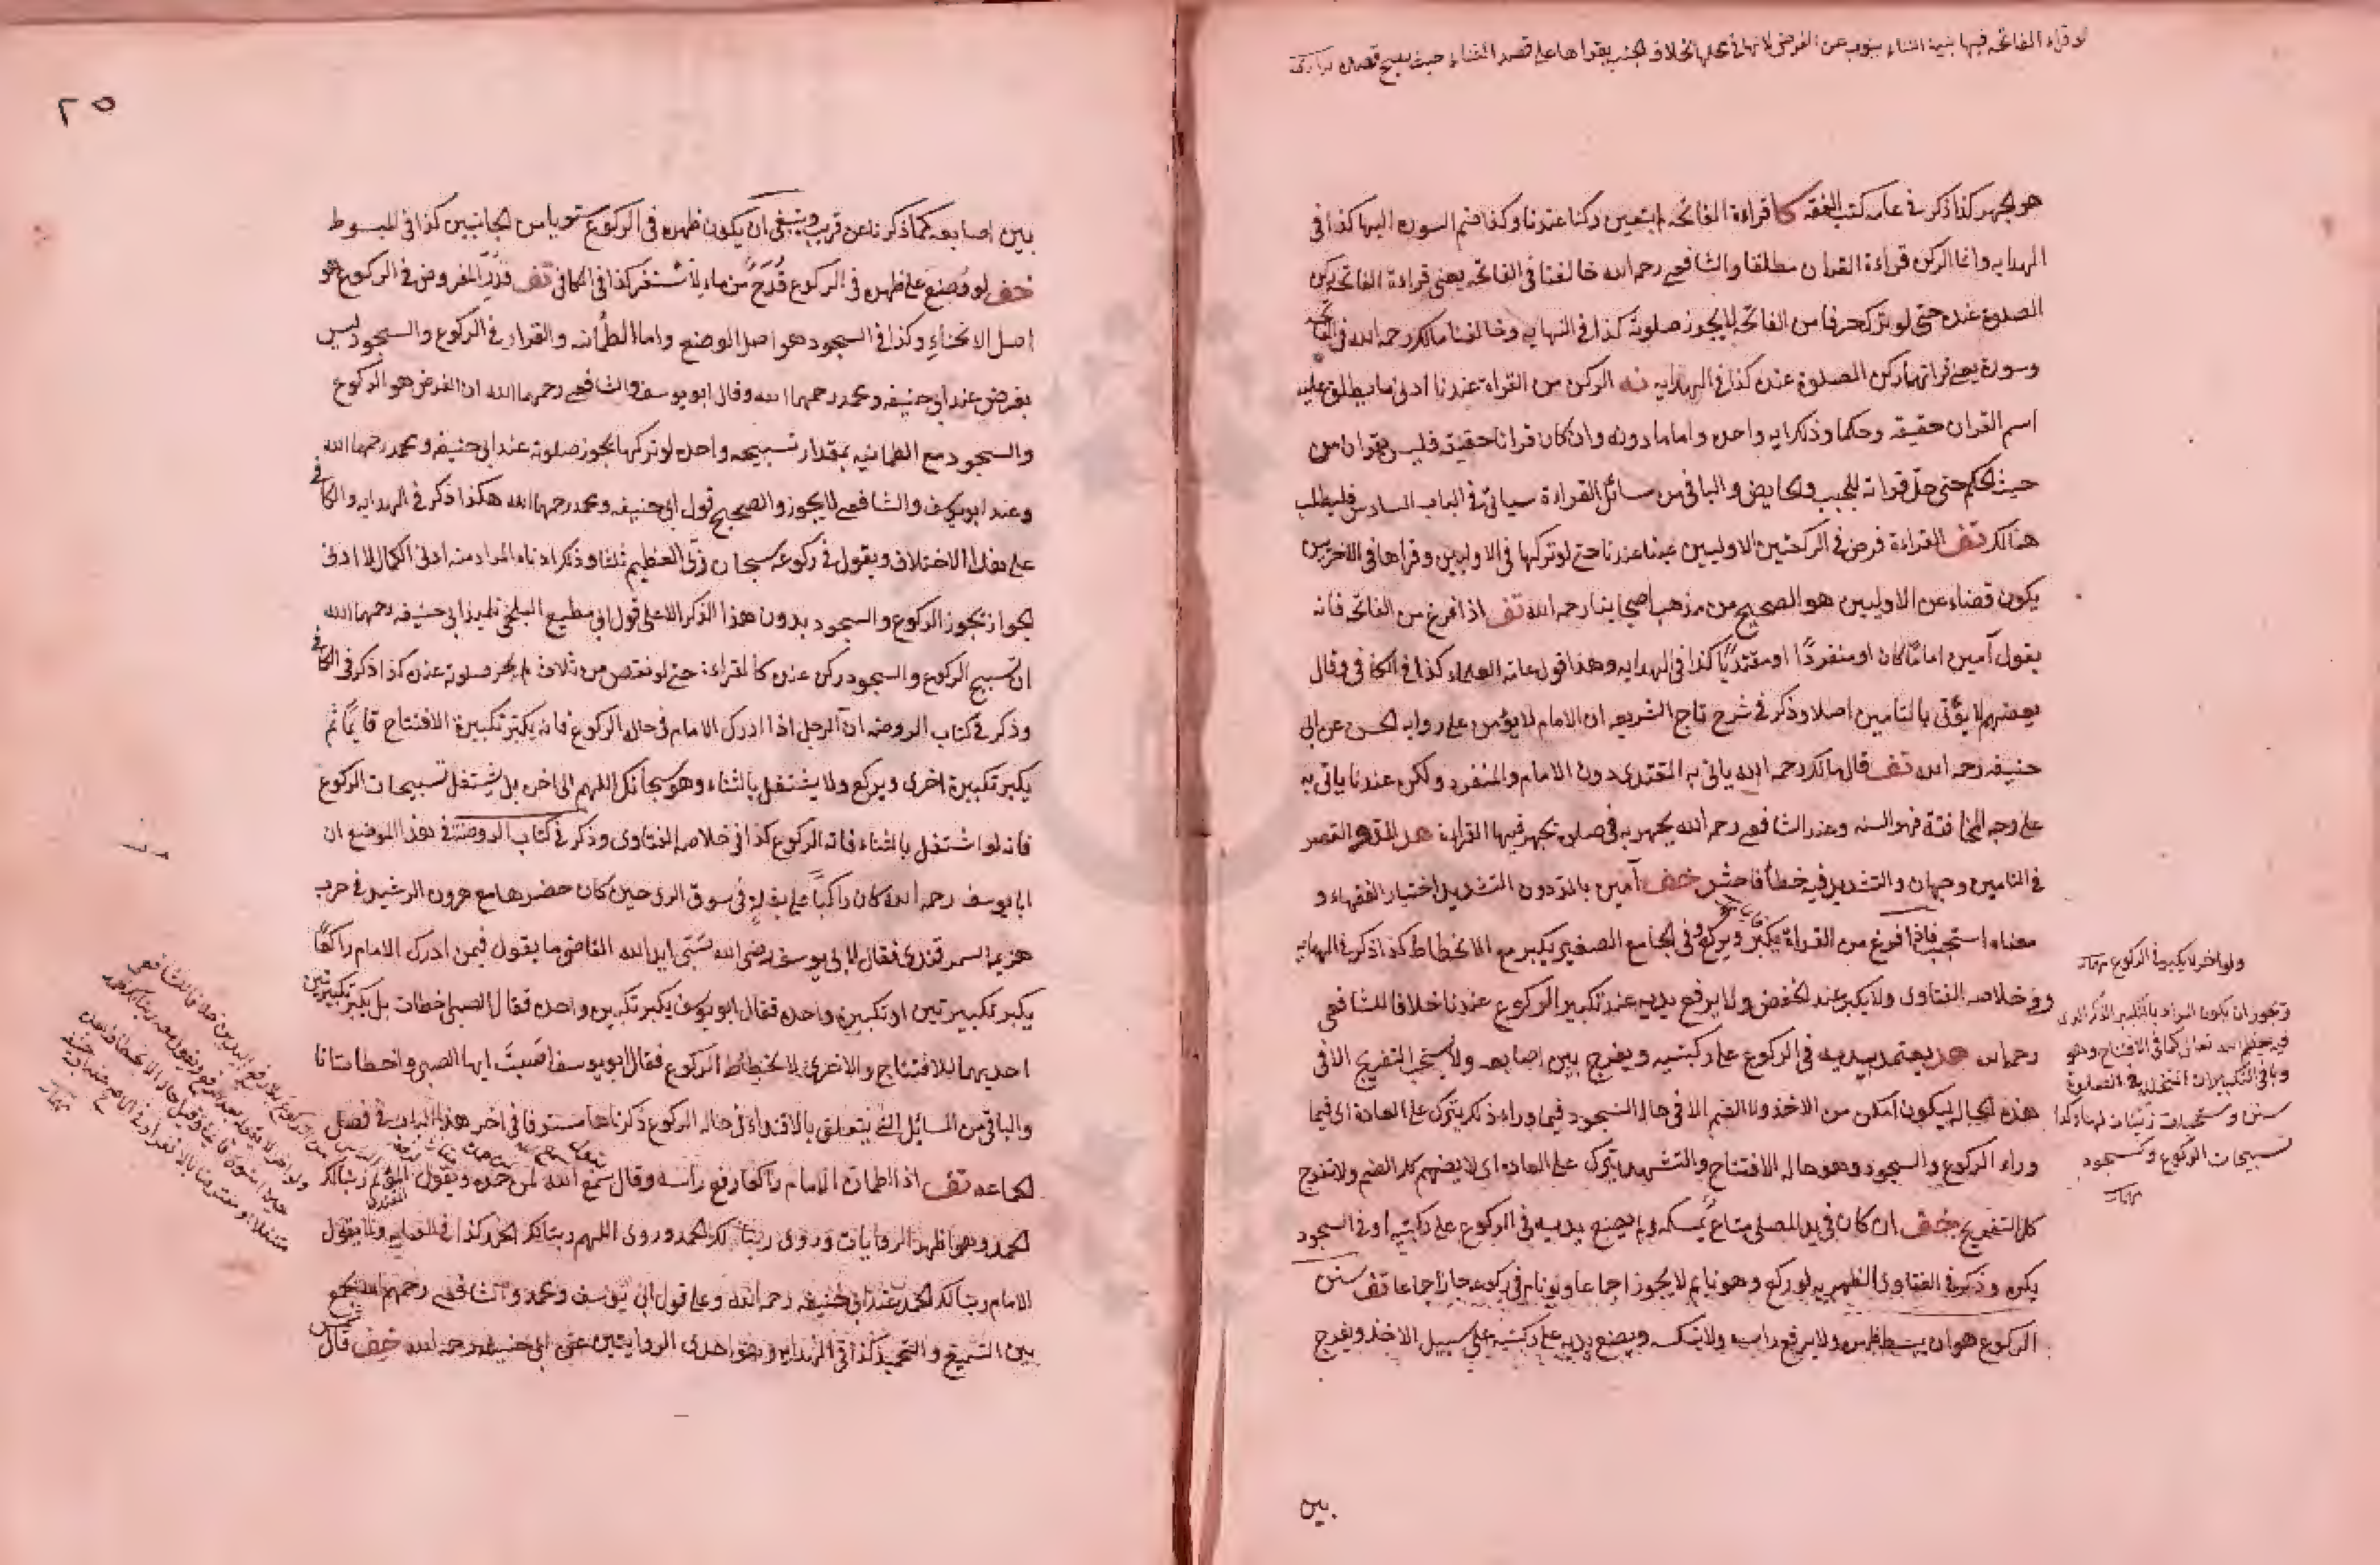 لو قراء الفاتحه فيها بنية الثناء ينوب عن الفرض لانها في محلها بخلاف الجنب يقراها على قصد الثناء حيث يصح قصده
هو الجهر كذا ذكر في عامه كتب الفقه كا قراءة الفاتحه لم يتعين ركنا عندنا وكذا ضم السوره اليها كذا في
الهدايه وانما الركن قراءة القران مطلقا والشافعي رحمه الله خالفنا في الفاتحه يعني قراءة الفاتحه ركن
الصلوة عنده حتى لو ترك حرفا من الفاتحه لا يجوز صلوته كذا في النهايه وخالفنا مالك رحمه الله في الفاتحه
وسورة يعني قراتهما ركن الصلوة عنده كذا في الهدايه نه الركن من القراة عندنا ادنى ما يطلق عليه
اسم القران حقيقه وحكما وذلك ايه واحده واما ما دونه وان كان قرانا حقيقة فليس بقران من
حيث الحكم حتى حل قراته للجنب والحايض والباقي من مسائل القراءة سياتي في الباب السادس فليطلب
هنالك تف القراءة فرض في الركعتين الاوليين عندنا حتى لو تركها في الاوليين وقراها في الاخريين
يكون قضاء عن الاوليين هو الصحيح من مذهب اصحابنا رحمه الله تف اذا فرغ من الفاتحه فانه
يقول آمين اماما كان او منفردًا او مقتديًا كذا في الهدايه وهذا قول عامة العلماء كذا في الكافي وقال
بعضهم لا يؤتى بالتامين اصلا وذكر في شرح تاج الشريعه ان الامام لا يؤمن على روايه الحسن عن ابي
حنيفه رحمه الله تف قال مالك رحمه الله ياتي به المقتدي دون الامام والمنفرد ولكن عندنا ياتي به
على وجه المخافتة فهو السنه وعند الشافعي رحمه الله يجهر به في صلوة يجهر فيها القراءة هد المد والقصر
في التامين وجهان والتشديد فيه خطأ فاحش خف آمين بالمد دون التشديد اختيار الفقهاء و
معناه استجب فاذا فرغ من القراة يكبر ويركع وفي الجامع الصغير يكبر مع الانحطاط كذا ذكر في الهدايه
وفي خلاصه الفتاوى ولا يكبر عند الخفض ولا يرفع يديه عند تكبير الركوع عندنا خلافا للشافعي
رحمه الله هد يعتمد بيديه في الركوع على ركبتيه ويفرج بين اصابعه ولا يستحب التفريج الا في
هذه الحاله ليكون امكن من الاخذ ولا الضم الا في حاله السجود فيما وراء ذلك يترك على العادة اي فيما
وراء الركوع والسجود وهو حاله الافتتاح والتشهد يترك على العاده اي لا يضم كل الضم ولا تفرج
كل التفريج خف ان كان في يد المصلي متاع يمسكه ولم يضع يديه في الركوع على ركبتيه او في السجود
يكره وذكر في الفتاوى الظهيريه لو ركع وهو نايم لا يجوز اجماعا ولو نام في ركوعه جاز اجماعا تف سنن
الركوع هو ان يبسط ظهره ولا يرفع راسه ولا ينكسه ويضع يديه على ركبتيه على سبيل الاخذ ويفرج
بين
ويجوز ان يكون المراد بالتكبير الذكر الذي
فيه تعظيم الله تعالى كما في الافتتاح وهو
سنن ومستحبات
تسبيحات الركوع وسجود
٢٥
بين اصابعه كما ذكرنا عن قريب وينبغي ان يكون ظهره في الركوع مستويا من الجانبين كذا في المبسوط
خف لو وضع على ظهره في الركوع قدح من ماء لاستقر كذا في الكافي تف قدر المفروض في الركوع هو
اصل الانحناء وكذا في السجود هو اصل الوضع واما الطمانه والقرار في الركوع والسجود ليس
بفرض عند ابي حنيفه ومحمد رحمهما الله وقال ابو يوسف والشافعي رحمهما الله ان الفرض هو الركوع
والسجود مع الطمانيه بمقدار تسبيحه واحده لو تركها يجوز صلوته عند ابي حنيفه ومحمد رحمهما الله
وعند ابو يوسف والشافعي لا يجوز والصحيح قول ابي حنيفه ومحمد رحمهما الله هكذا ذكر في الهدايه والكافي
على هذا الاختلاف ويقول في ركوعه سبحان ربي العظيم ثلثا وذلك ادناه المراد منه ادنى الكمال لا ادنى
الجواز يجوز الركوع والسجود بدون هذا الذكر الا على قول ابي مطيع البلخي تلميذ ابي حنيفه رحمهما الله
ان تسبيح الركوع والسجود ركن عنده كالقراءة حتى لو نقص من ثلاث لم يجز صلوته عنده كذا ذكر في الكافي
وذكر في كتاب الروضه ان الرجل اذا ادرك الامام في حاله الركوع فانه يكبر تكبيرة الافتتاح قايمًا ثم
يكبر تكبيرة اخرى ويركع ولا يشتغل بالثناء وهو سبحانك اللهم الى اخره بل يشتغل تسبيحات الركوع
فانه لو اشتغل بالثناء فاته الركوع كذا في خلاصه الفتاوى وذكر في كتاب الروضة في هذا الموضع ان
ابا يوسف رحمه الله كان راكبًا على بغلة في سوق الري حين كان حضرها مع هرون الرشيد في حرب
هزيم السمرقندي فقال لابي يوسف رضي الله صبي ايد الله القاضي ما يقول فيمن ادرك الامام راكعًا
يكبر تكبيرتين او تكبيرة واحده فقال ابو يوسف يكبر تكبيره واحده فقال الصبي اخطات بل يكبر تكبيرتين
احديهما للافتتاح والاخرى لانحطاط الركوع فقال ابو يوسف اصبت ايها الصبي واخطات انا
والباقي من المسائل التي يتعلق بالاقتداء في حاله الركوع ذكرناها مستوفا في اخر هذا الباب في فصل
الجماعه تف اذا اطمان الامام راكعا رفع راسه وقال سمع الله لمن حمده ويقول المؤتم ربنا لك
الحمد وهو اظهر الروايات وروى ربنا لك الحمد وروى اللهم ربنا لك الحمد كذا في ولا يقول
الامام ربنا لك الحمد عند ابي حنيفه رحمه الله وعلى قول ابي يوسف ومحمد والشافعي رحمهم الله يجمع
بين التسميع والتحميد كذا في الهدايه وهو احدى الروايتين عن ابي حنيفه رحمه الله خف قال شمس